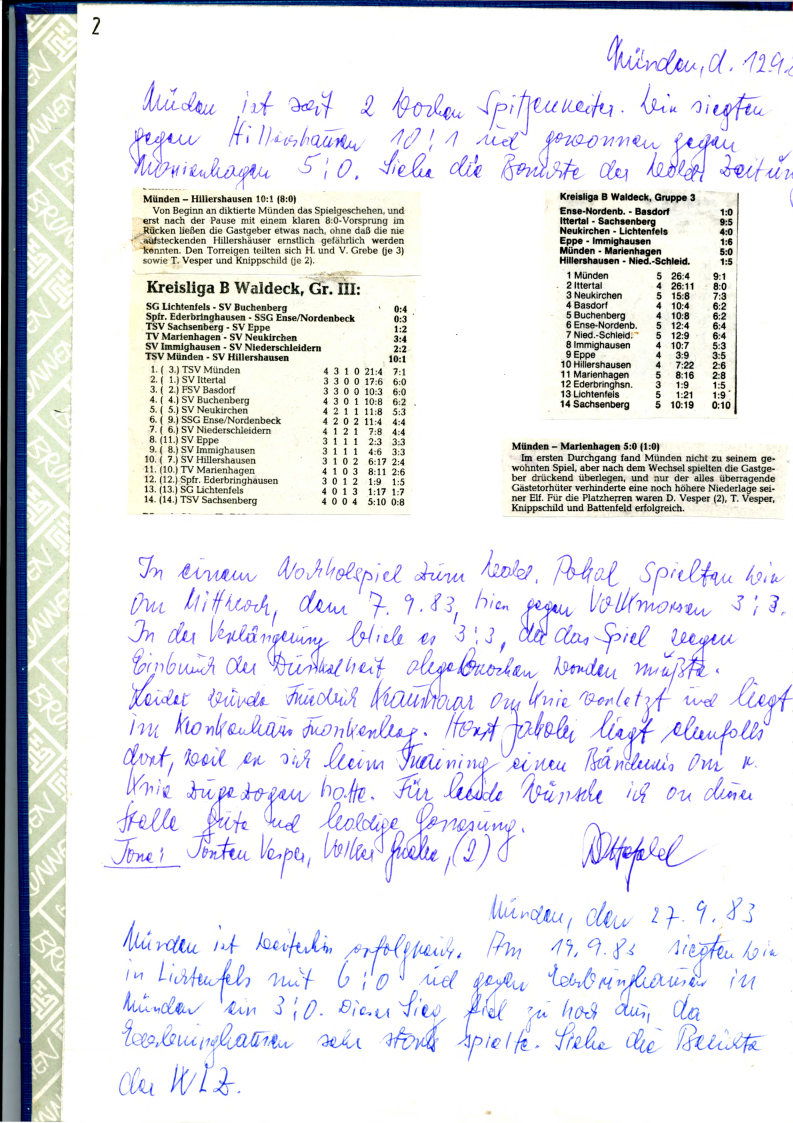 2
Münden, d. 12.9.8
Münden ist seit 2 Wochen Spitzenreiter. Wir siegten
gegen Hillershausen 10:1 und gewonnen gegen
Marienhagen 5:0. Siehe die Berichte der Wald. Zeitung
Münden – Hillershausen 10:1 (8:0)
Von Beginn an diktierte Münden das Spielgeschehen, und
erst nach der Pause mit einem klaren 8:0-Vorsprung im
Rücken ließen die Gastgeber etwas nach, ohne daß die nie
aufsteckenden Hillershäuser ernstlich gefährlich werden
konnten. Den Torreigen teilten sich H. und V. Grebe (je 3)
sowie T. Vesper und Knippschild (je 2).
Kreisliga B Waldeck, Gr. III:
SG Lichtenfels - SV Buchenberg 0:4
Spfr. Ederbringhausen - SSG Ense/Nordenbeck 0:3
TSV Sachsenberg - SV Eppe 1:2
TV Marienhagen - SV Neukirchen 3:4
SV Immighausen - SV Niederschleidern 2:2
TSV Münden - SV Hillershausen 10:1
1. ( 3.) TSV Münden 4 3 1 0 21:4 7:1
2. ( 1.) SV Ittertal 3 3 0 0 17:6 6:0
3. ( 2.) FSV Basdorf 3 3 0 0 10:3 6:0
4. ( 4.) SV Buchenberg 4 3 0 1 10:8 6:2
5. ( 5.) SV Neukirchen 4 2 1 1 11:8 5:3
6. ( 9.) SSG Ense/Nordenbeck 4 2 0 2 11:4 4:4
7. ( 6.) SV Niederschleidern 4 1 2 1 7:8 4:4
8. (11.) SV Eppe 3 1 1 1 2:3 3:3
9. ( 8.) SV Immighausen 3 1 1 1 4:6 3:3
10. ( 7.) SV Hillershausen 3 1 0 2 6:17 2:4
11. (10.) TV Marienhagen 4 1 0 3 8:11 2:6
12. (12.) Spfr. Ederbringhausen 3 0 1 2 1:9 1:5
13. (13.) SG Lichtenfels 4 0 1 3 1:17 1:7
14. (14.) TSV Sachsenberg 4 0 0 4 5:10 0:8
Kreisliga B Waldeck, Gruppe 3
Ense-Nordenb. - Basdorf 1:0
Ittertal - Sachsenberg 9:5
Neukirchen - Lichtenfels 4:0
Eppe - Immighausen 1:6
Münden - Marienhagen 5:0
Hillershausen - Nied.-Schleid. 1:5
1 Münden 5 26:4 9:1
2 Ittertal 4 26:11 8:0
3 Neukirchen 5 15:8 7:3
4 Basdorf 4 10:4 6:2
5 Buchenberg 4 10:8 6:2
6 Ense-Nordenb. 5 12:4 6:4
7 Nied.-Schleid. 5 12:9 6:4
8 Immighausen 4 10:7 5:3
9 Eppe 4 3:9 3:5
10 Hillershausen 4 7:22 2:6
11 Marienhagen 5 8:16 2:8
12 Ederbringhsn. 3 1:9 1:5
13 Lichtenfels 5 1:21 1:9
14 Sachsenberg 5 10:19 0:10
Münden – Marienhagen 5:0 (1:0)
Im ersten Durchgang fand Münden nicht zu seinem ge-
wohnten Spiel, aber nach dem Wechsel spielten die Gastge-
ber drückend überlegen, und nur der alles überragende
Gästetorhüter verhinderte eine noch höhere Niederlage sei-
ner Elf. Für die Platzherren waren D. Vesper (2), T. Vesper,
Knippschild und Battenfeld erfolgreich.
In einem Nachholspiel zum Wald. Pokal spielten wir
am Mittwoch, dem 7.9.83, hier gegen Volkmarsen 3:3.
In der Verlängerung bliebe es 3:3, da das Spiel wegen
Einbruch der Dunkelheit abgebrochen werden mußte.
Leider wurde Friedrich Kraushaar am Knie verletzt und liegt
im Krankenhaus Frankenberg. Horst Jakobi liegt ebenfalls
dort, weil er sich beim Training einen Bänderriß am r.
Knie zugezogen hatte. Für beide wünsche ich an dieser
Stelle gute und baldige Genesung.
Tore: Torsten Vesper, Volker Grebe, (2)
Münden, den 27.9.83
Münden ist weiterhin erfolgreich. Am 19.9.83 siegten wir
in Lichtenfels mit 6:0 und gegen Ederbringhausen in
Münden ein 3:0. Dieser Sieg fiel zu hoch aus, da
Ederbringhausen sehr stark spielte. Siehe die Berichte
der WLZ.